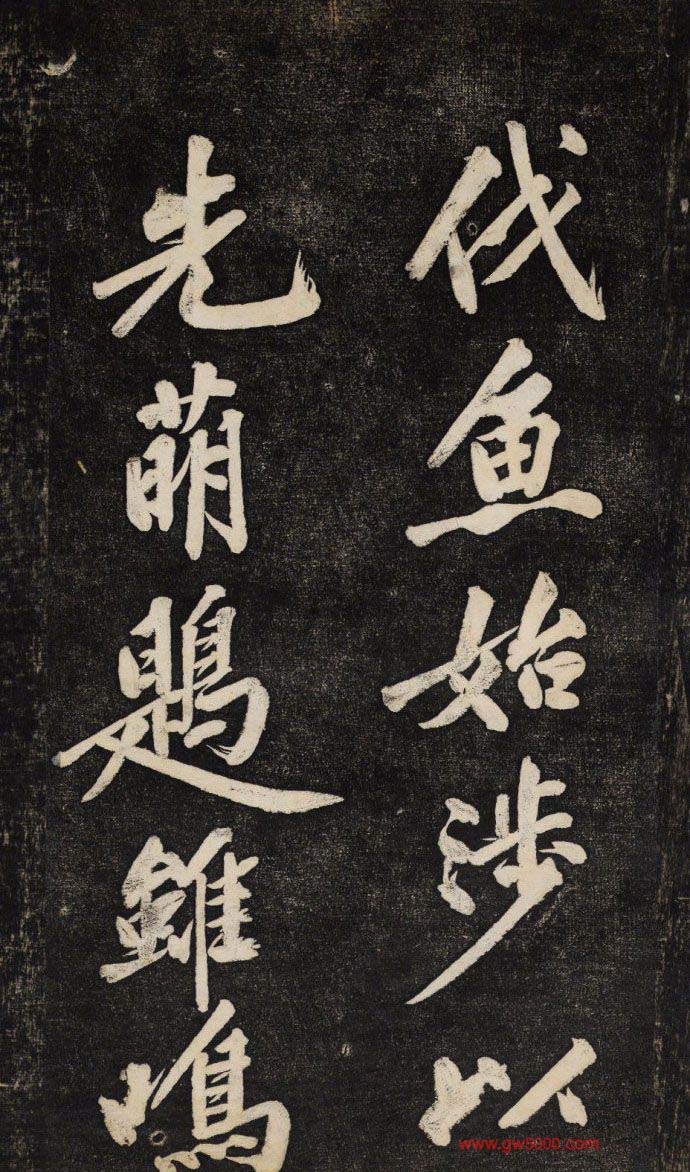 伐魚始涉以
先萌鶗雖鳴
www.gw5000.com